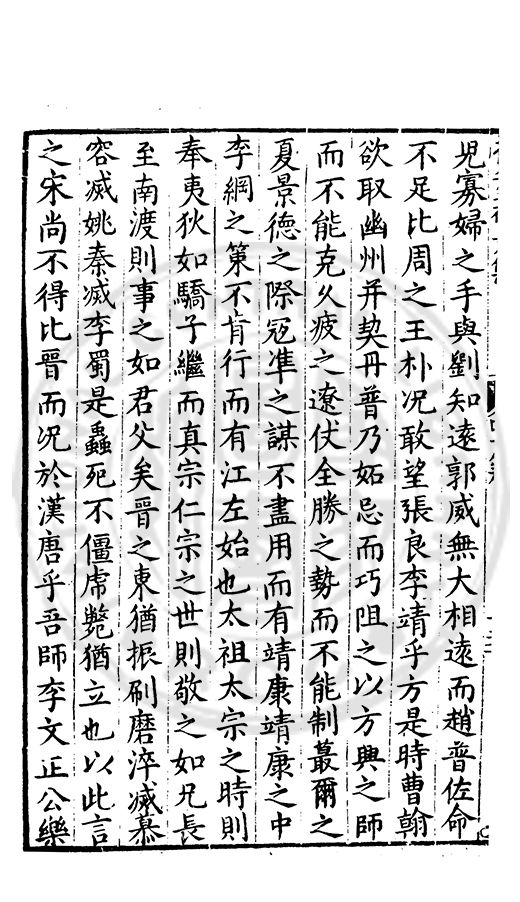 児寡婦之手與劉知遠郭威無大相遠而趙普佐命
不足比周之王朴况敢望張良李靖乎方是時曹翰
欲取幽州并契丹普乃妬忌而巧阻之以方興之師
而不能克久疲之遼仗全勝之勢而不能制蕞爾之
夏景德之際冦凖之謀不盡用而有靖康靖康之中
李綱之策不肯行而有江左始也太祖太宗之時則
奉夷狄如驕子繼而真宗仁宗之世則敬之如兄長
至南渡則事之如君父矣晉之東猶振刷磨淬滅慕
容滅姚秦滅李蜀是蟲死不僵虎斃猶立也以此言
之宋尚不得比晉而况於漢唐乎吾師李文正公樂